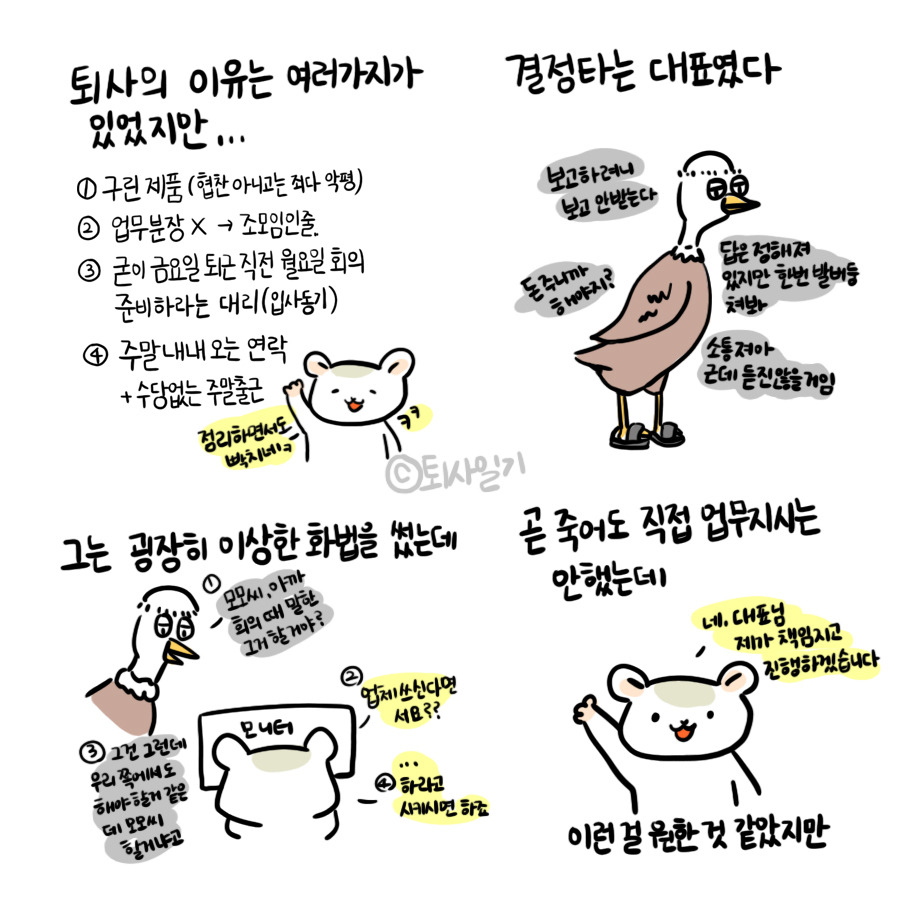 퇴사의 이유는 여러가지가
있었지만...
① 구린 제품 (협찬 아니고는 죄다 악평)
② 업무분장 X → 조모임인줄.
③ 굳이 금요일 퇴근 직전 월요일 회의
준비하라는 대리(입사동기)
④ 주말내내 오는 연락
+ 수당없는 주말출근
정리하면서도
빡치네ㅋ
ㅋㅋ
결정타는 대표였다
보고하려니
보고 안받는다
돈주니까
해야지?
답은 정해져
있지만 한번 발버둥
쳐봐
소통져아
근데 듣진않을거임
ⓒ퇴사일기
그는 굉장히 이상한 화법을 썼는데
①
모모씨, 아까
회의 때 말한
그거 할거야?
②
업체쓰신다면
서요??
모니터
③ 그건 그런데
우리 쪽에서도
해야할거 같은
데 모모씨
할거냐고
④
...
하라고
시키시면 하죠
곧 죽어도 직접 업무지시는
안했는데
네, 대표님
제가 책임지고
진행하겠습니다
이런 걸 원한 것 같았지만